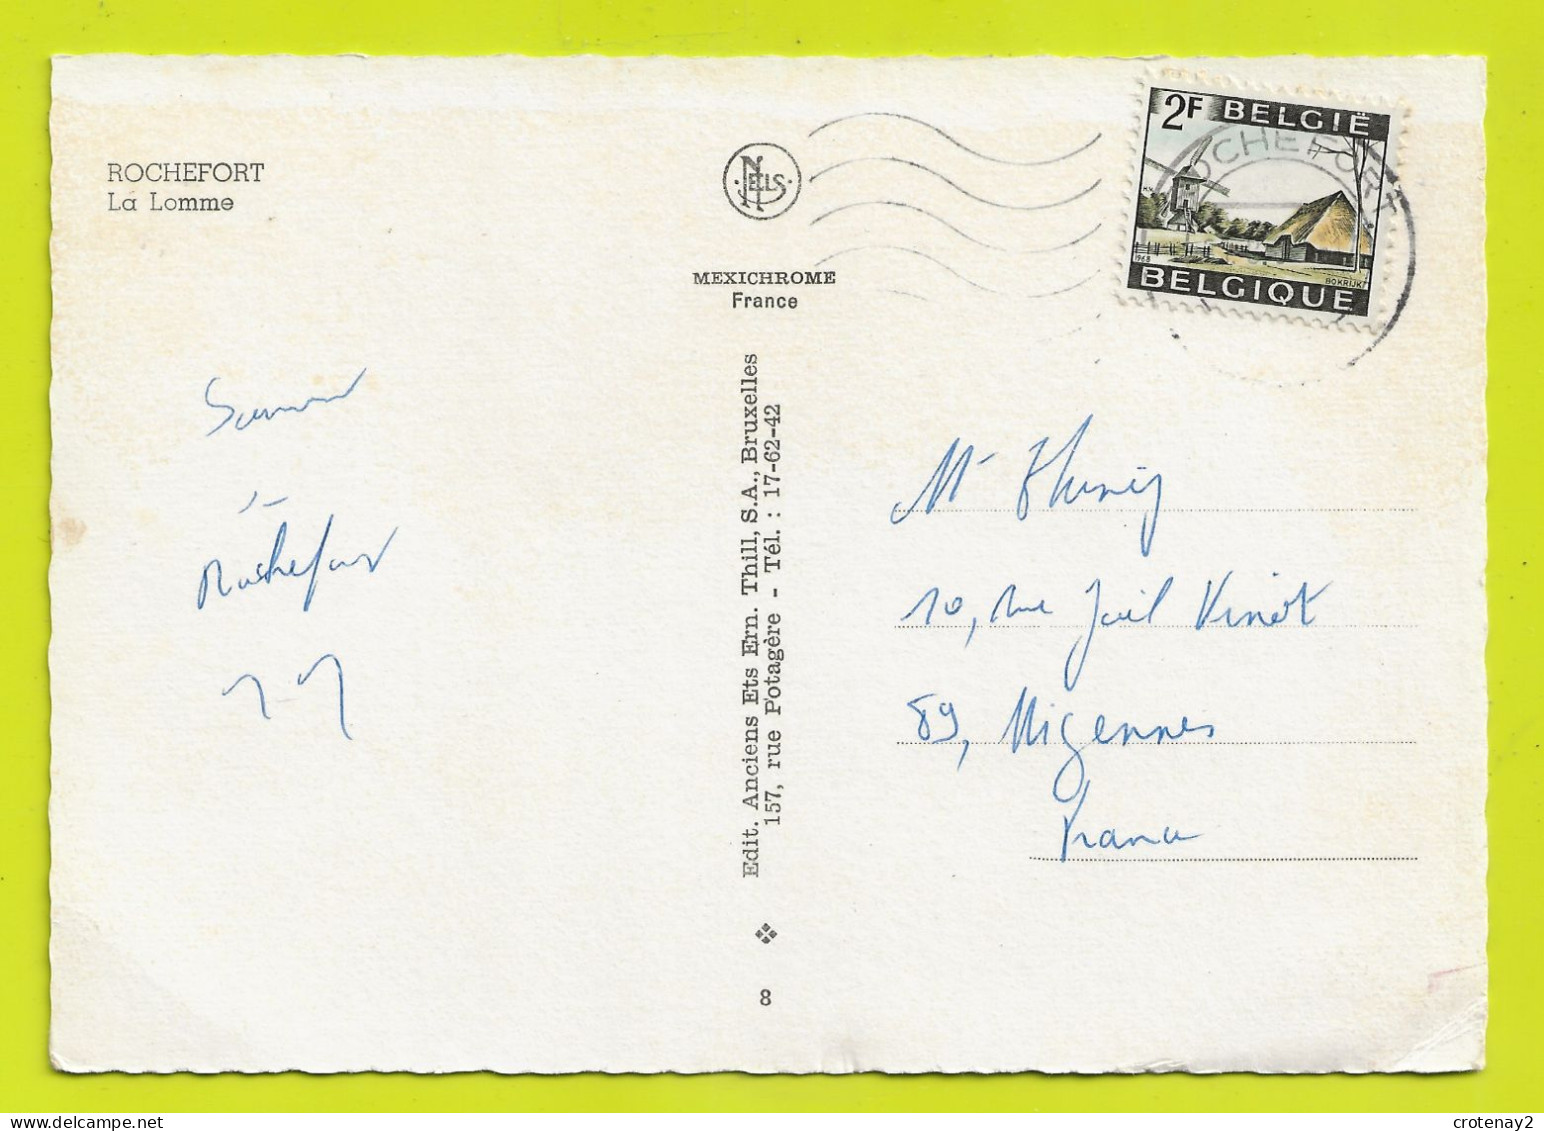 ROCHEFORT
La Lomme
NELS
MEXICHROME
France
2F BELGIË
1968
BOKRIJK
BELGIQUE
ROCHEFORT
Edit. Anciens Ets Ern. Thill, S.A., Bruxelles
157, rue Potagère - Tél. : 17-62-42
8
Rochefort
Mr
10, rue Vinot
89, Migennes
France
crotenay2